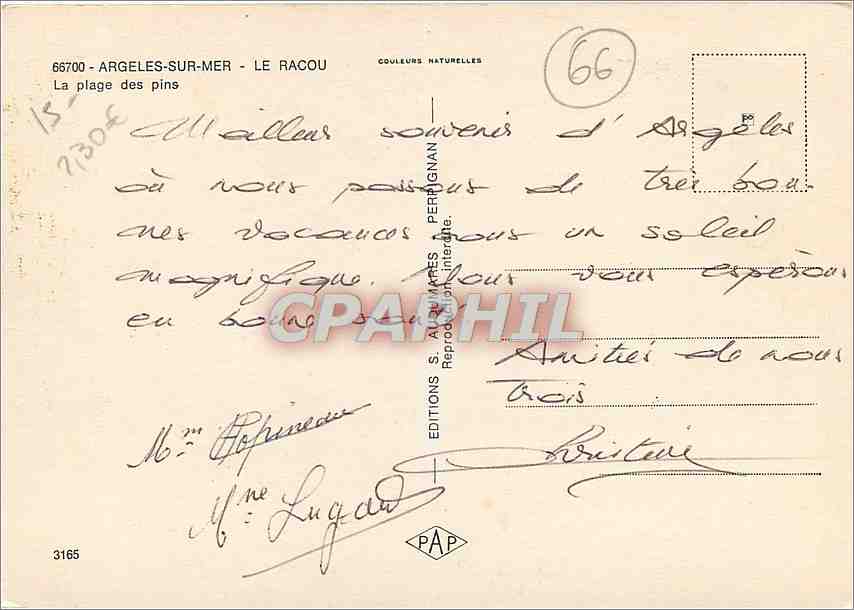 66700 - ARGELES-SUR-MER - LE RACOU
La plage des pins
COULEURS NATURELLES
66
15-
2,30€
Meilleurs souvenirs d'Argeles
où nous passons de très bon-
nes vacances sous un soleil
magnifique. Nous vous espérons
en bonne santé
Amitiés de nous
trois
Christine
Mme Popineau
Mne Lugard
EDITIONS S. AURUMARES - PERPIGNAN
Reproduction interdite.
CPARPHIL
PAP
3165